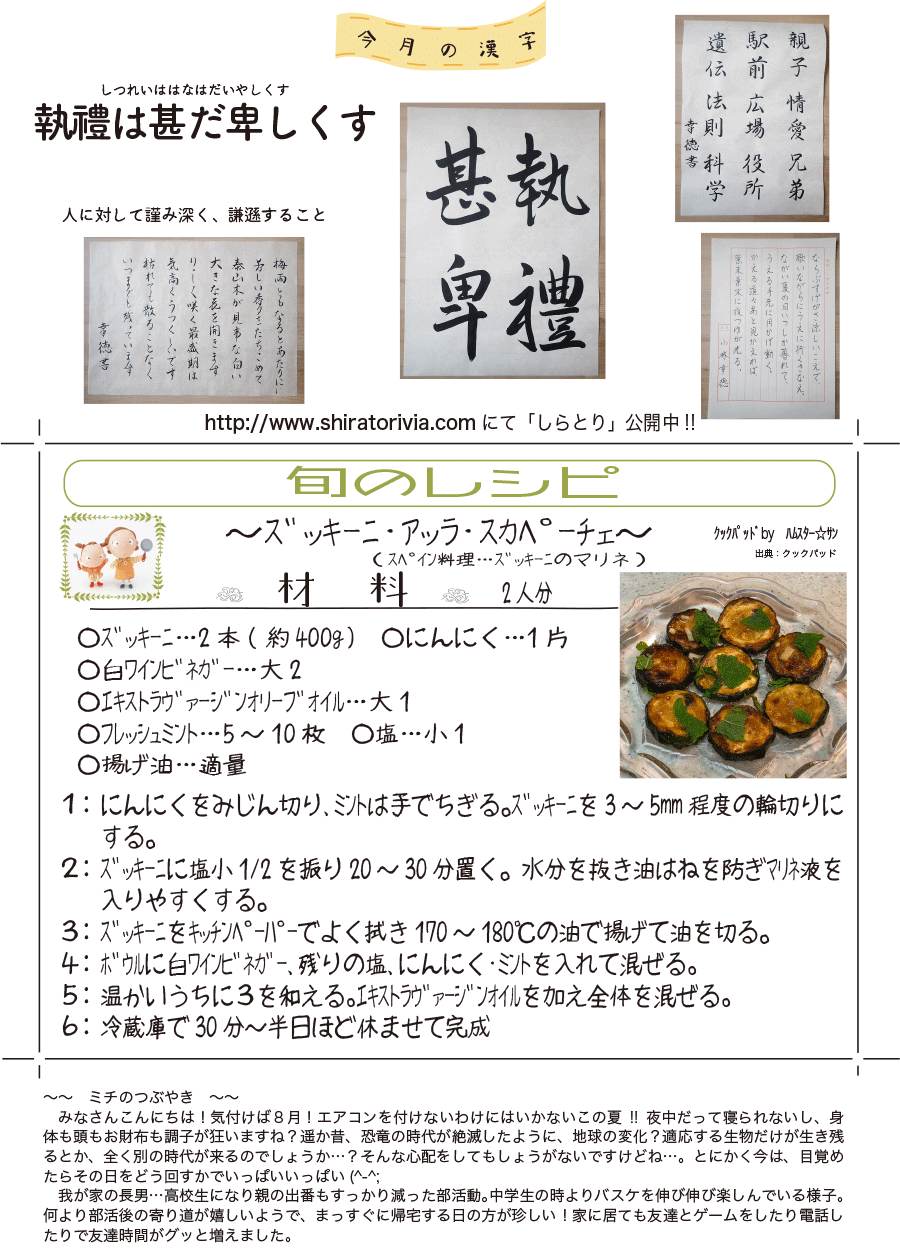 今月の漢字
しつれいははなはだいやしくす
執禮は甚だ卑しくす
人に対して謹み深く、謙遜すること
執禮
甚卑
親子 情愛 兄弟
駅前 広場 役所
遺伝 法則 科学
幸徳書
梅雨ともなるとあたりに
芳しい香りをたちこめて
泰山木が見事な白い
大きな花を開きます
りりしく咲く最盛期は
気高くうつくしいです
枯れても散ることなく
いつまでも残っています
幸徳書
ならぶすげがさ涼しいこえで、
歌いながらにうえ行くさなえ、
ながい夏の日いつしか暮れて、
うえる手先に月かげ動く。
かえる道々あと見かえれば、
葉末葉末に夜つゆが光る。
小林幸徳
http://www.shiratorivia.com にて「しらとり」公開中 !!
旬のレシピ
～ズッキーニ・アッラ・スカペーチェ～
(スペイン料理…ズッキーニのマリネ)
クックパッド by ハムスター☆サン
出典：クックパッド
材 料 2人分
○ズッキーニ…2 本 ( 約 400g) ○にんにく…1 片
○白ワインビネガー…大 2
○エキストラヴァージンオリーブオイル…大 1
○フレッシュミント…5 ～ 10 枚 ○塩…小 1
○揚げ油…適量
1： にんにくをみじん切り、ミントは手でちぎる。ズッキーニを 3 ～ 5mm 程度の輪切りに
する。
2： ズッキーニに塩小 1/2 を振り 20 ～ 30 分置く。水分を抜き油はねを防ぎマリネ液を
入りやすくする。
3： ズッキーニをキッチンペーパーでよく拭き 170 ～ 180℃の油で揚げて油を切る。
4： ボウルに白ワインビネガー、残りの塩、にんにく・ミントを入れて混ぜる。
5： 温かいうちに３を和える。エキストラヴァージンオイルを加え全体を混ぜる。
6： 冷蔵庫で 30 分～半日ほど休ませて完成
～～ ミチのつぶやき ～～
みなさんこんにちは！気付けば８月！エアコンを付けないわけにはいかないこの夏 !! 夜中だって寝られないし、身
体も頭もお財布も調子が狂いますね？遥か昔、恐竜の時代が絶滅したように、地球の変化？適応する生物だけが生き残
るとか、全く別の時代が来るのでしょうか…？そんな心配をしてもしょうがないですけどね…。とにかく今は、目覚め
たらその日をどう回すかでいっぱいいっぱい (^-^;
我が家の長男…高校生になり親の出番もすっかり減った部活動。中学生の時よりバスケを伸び伸び楽しんでいる様子。
何より部活後の寄り道が嬉しいようで、まっすぐに帰宅する日の方が珍しい！家に居ても友達とゲームをしたり電話し
たりで友達時間がグッと増えました。